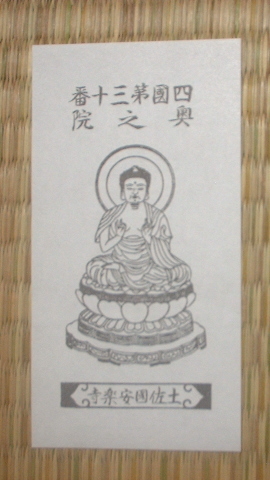 四國第三十番
奥之院
土佐國安楽寺